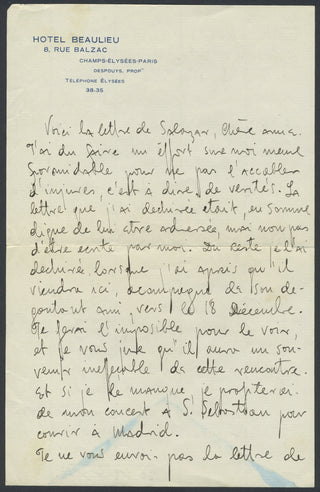 HOTEL BEAULIEU
8, RUE BALZAC
CHAMPS-ÉLYSÉES-PARIS
DESPOUYS, PROP
TÉLÉPHONE ÉLYSÉES
38-35
Voici la lettre de Salazar, Chère amie.
J'ai dû faire un effort sur moi même
formidable pour ne pas l'accabler
d'injures, c'est à dire de verités. La
lettre que j'ai dechirée etait, en somme
digne de lui etre adressée, mai non pas
d'être ecrite par moi. Du reste je l'ai
dechirée lorsque j'ai apris qu'il
viendra ici, acompagné de son de-
goutant ami, vers le 18 Décembre.
Je ferai l'imposible pour le voir,
et je vous jure qu'il aura un sou-
venir inefable de cette rencontre.
Et si je le manque je profiterai
de mon concert a St Sebastian pour
courir à Madrid.
Je ne vous envoi pas la lettre de